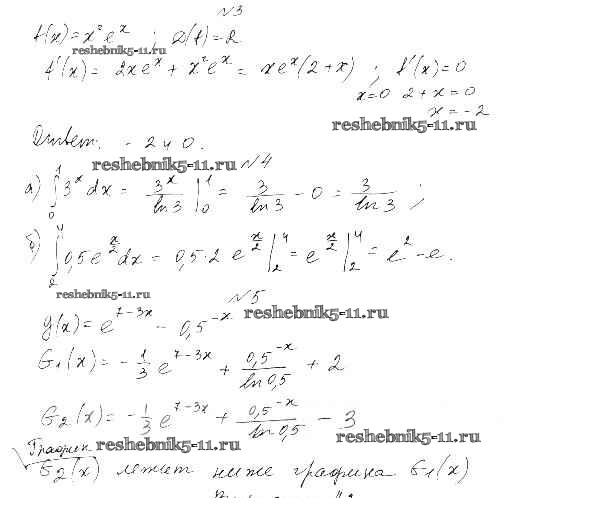 №3
f(x) = x²eˣ ; D(f) = R
reshebnik5-11.ru
f'(x) = 2xeˣ + x²eˣ = xeˣ(2+x) ; f'(x) = 0
x=0 2+x=0
x=-2
reshebnik5-11.ru
Ответ: -2 и 0.
reshebnik5-11.ru №4
а) ∫₀¹ 3ˣ dx = 3ˣ/ln3 |₀¹ = 3/ln3 - 0 = 3/ln3 ;
б) ∫₂⁴ 0,5e^(x/2) dx = 0,5·2 e^(x/2) |₂⁴ = e^(x/2) |₂⁴ = e² - e.
reshebnik5-11.ru
№5
g(x) = e^(7-3x) - 0,5^(-x) reshebnik5-11.ru
G₁(x) = -1/3 e^(7-3x) + 0,5^(-x)/ln0,5 + 2
G₂(x) = -1/3 e^(7-3x) + 0,5^(-x)/ln0,5 - 3
График reshebnik5-11.ru reshebnik5-11.ru
G₂(x) лежит ниже графика G₁(x)